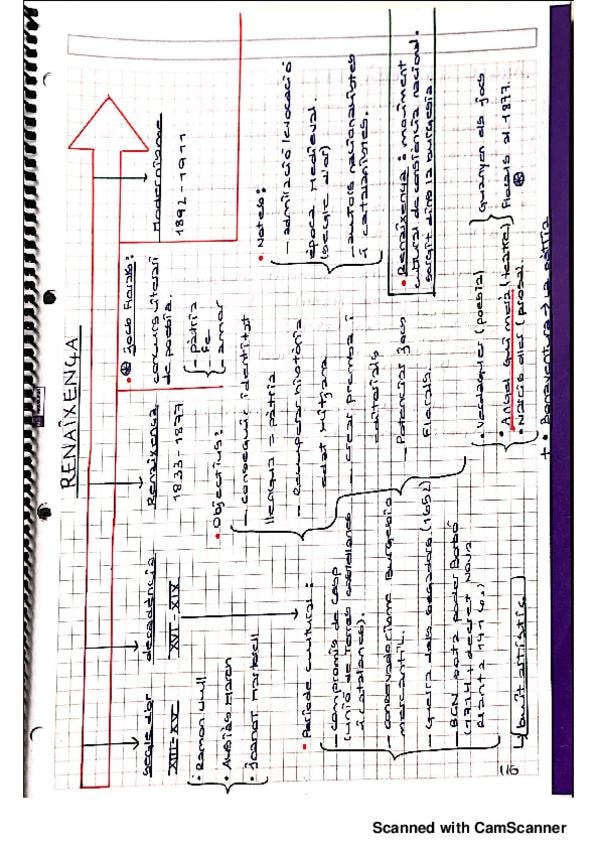 RENAIXENÇA
Segle d'or
XIII-XV
• Ramon Llull
• Ausiàs March
• Joanot Martorell
decadència
XVI-XIX
• Període cultural:
- Compromís de Casp
(unió de terres castellanes
i catalanes).
- Conservadorisme Burgesia
mercantil.
- Guerra dels segadors (1652)
- BCN sota poder Borbó
(1714) + decret Nova
Planta
buit artístic
Renaixença
1833-1877
• Objectius:
- Aconseguir identitat
llengua = pàtria
- Recuperar història
edat mitjana
- crear premsa i
editorials
- Potenciar Jocs
Florals.
• Verdaguer (poesia)
• Àngel Guimerà (teatre)
• Narcís Oller (prosa).
Guanyen els jocs
Florals al 1877.
+ • Bonaventura → La pàtria
• Jocs Florals:
concurs literari
de poesia.
- pàtria
- fe
- amor
Modernisme
1892-1911
• Notes:
- admiració/evocació
època Medieval.
(segle d'or)
- autors nacionalistes
i catalanistes.
• Renaixença: moviment
cultural de consciència nacional.
sorgit dins la burgesia.
116
Scanned with CamScanner